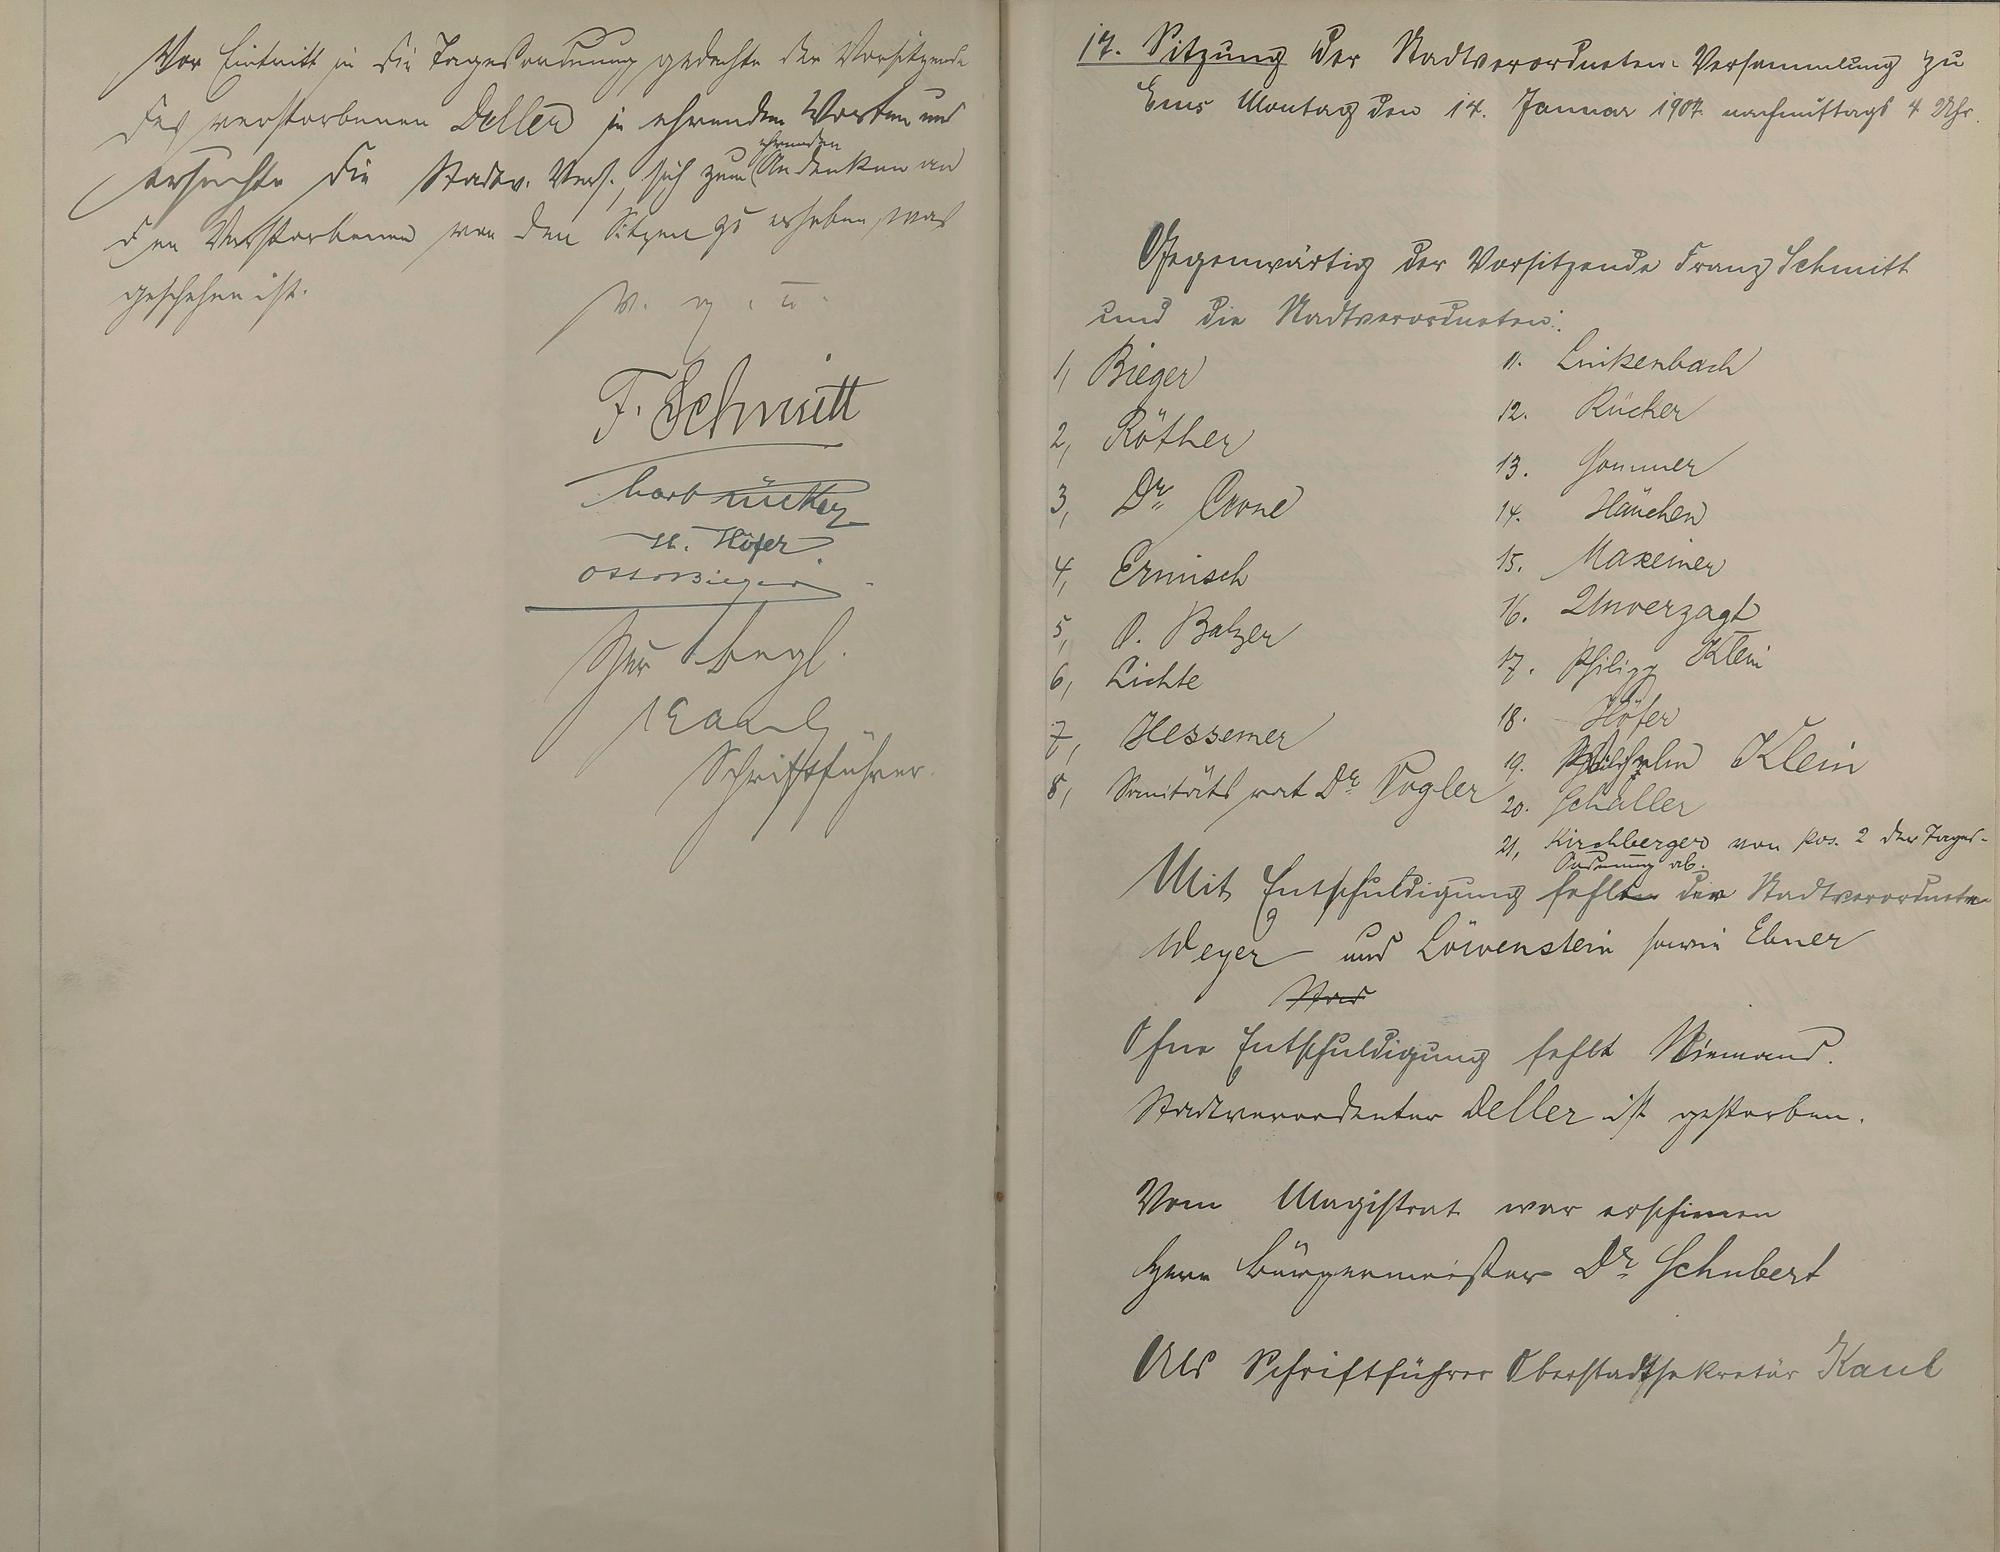 Vor Eintritt in die Tagesordnung gedachte der Vorsitzende
des verstorbenen Deller in ehrenden Worten und
ersuchte die Stadtv. Vers., sich zum ehrenden Andenken an
den Verstorbenen von den Sitzen zu erheben, was
geschehen ist.
v. g. u.
F. Schmitt
H. Höfer
Otto Bieger
Zur Begl.
Kaul
Schriftführer.
17. Sitzung der Stadtverordneten-Versammlung zu
Ems Montag den 14. Januar 1907. nachmittags 4 Uhr.
Gegenwärtig der Vorsitzende Franz Schmitt
und die Stadtverordneten:
1, Bieger
2, Röther
3, Dr. Crone
4, Ermisch
5, O. Balzer
6, Lichte
7, Hessemer
8, Sanitätsrat Dr. Vogler
11. Linkenbach
12. Rücker
13. Sommer
14. Häuchen
15. Maxeiner
16. Unverzagt
17. Philipp Klein
18. Höfer
19. Wilhelm Klein
20. Schaller
21, Kirchberger von Pos. 2 der Tages-
Ordnung ab.
Mit Entschuldigung fehlen die Stadtverordneten
Weyer und Löwenstein sowie Ebner
Ohne Entschuldigung fehlt Niemand.
Stadtverordneter Deller ist gestorben.
Vom Magistrat war erschienen
Herr Bürgermeister Dr. Schubert
Als Schriftführer Oberstadtsekretär Kaul